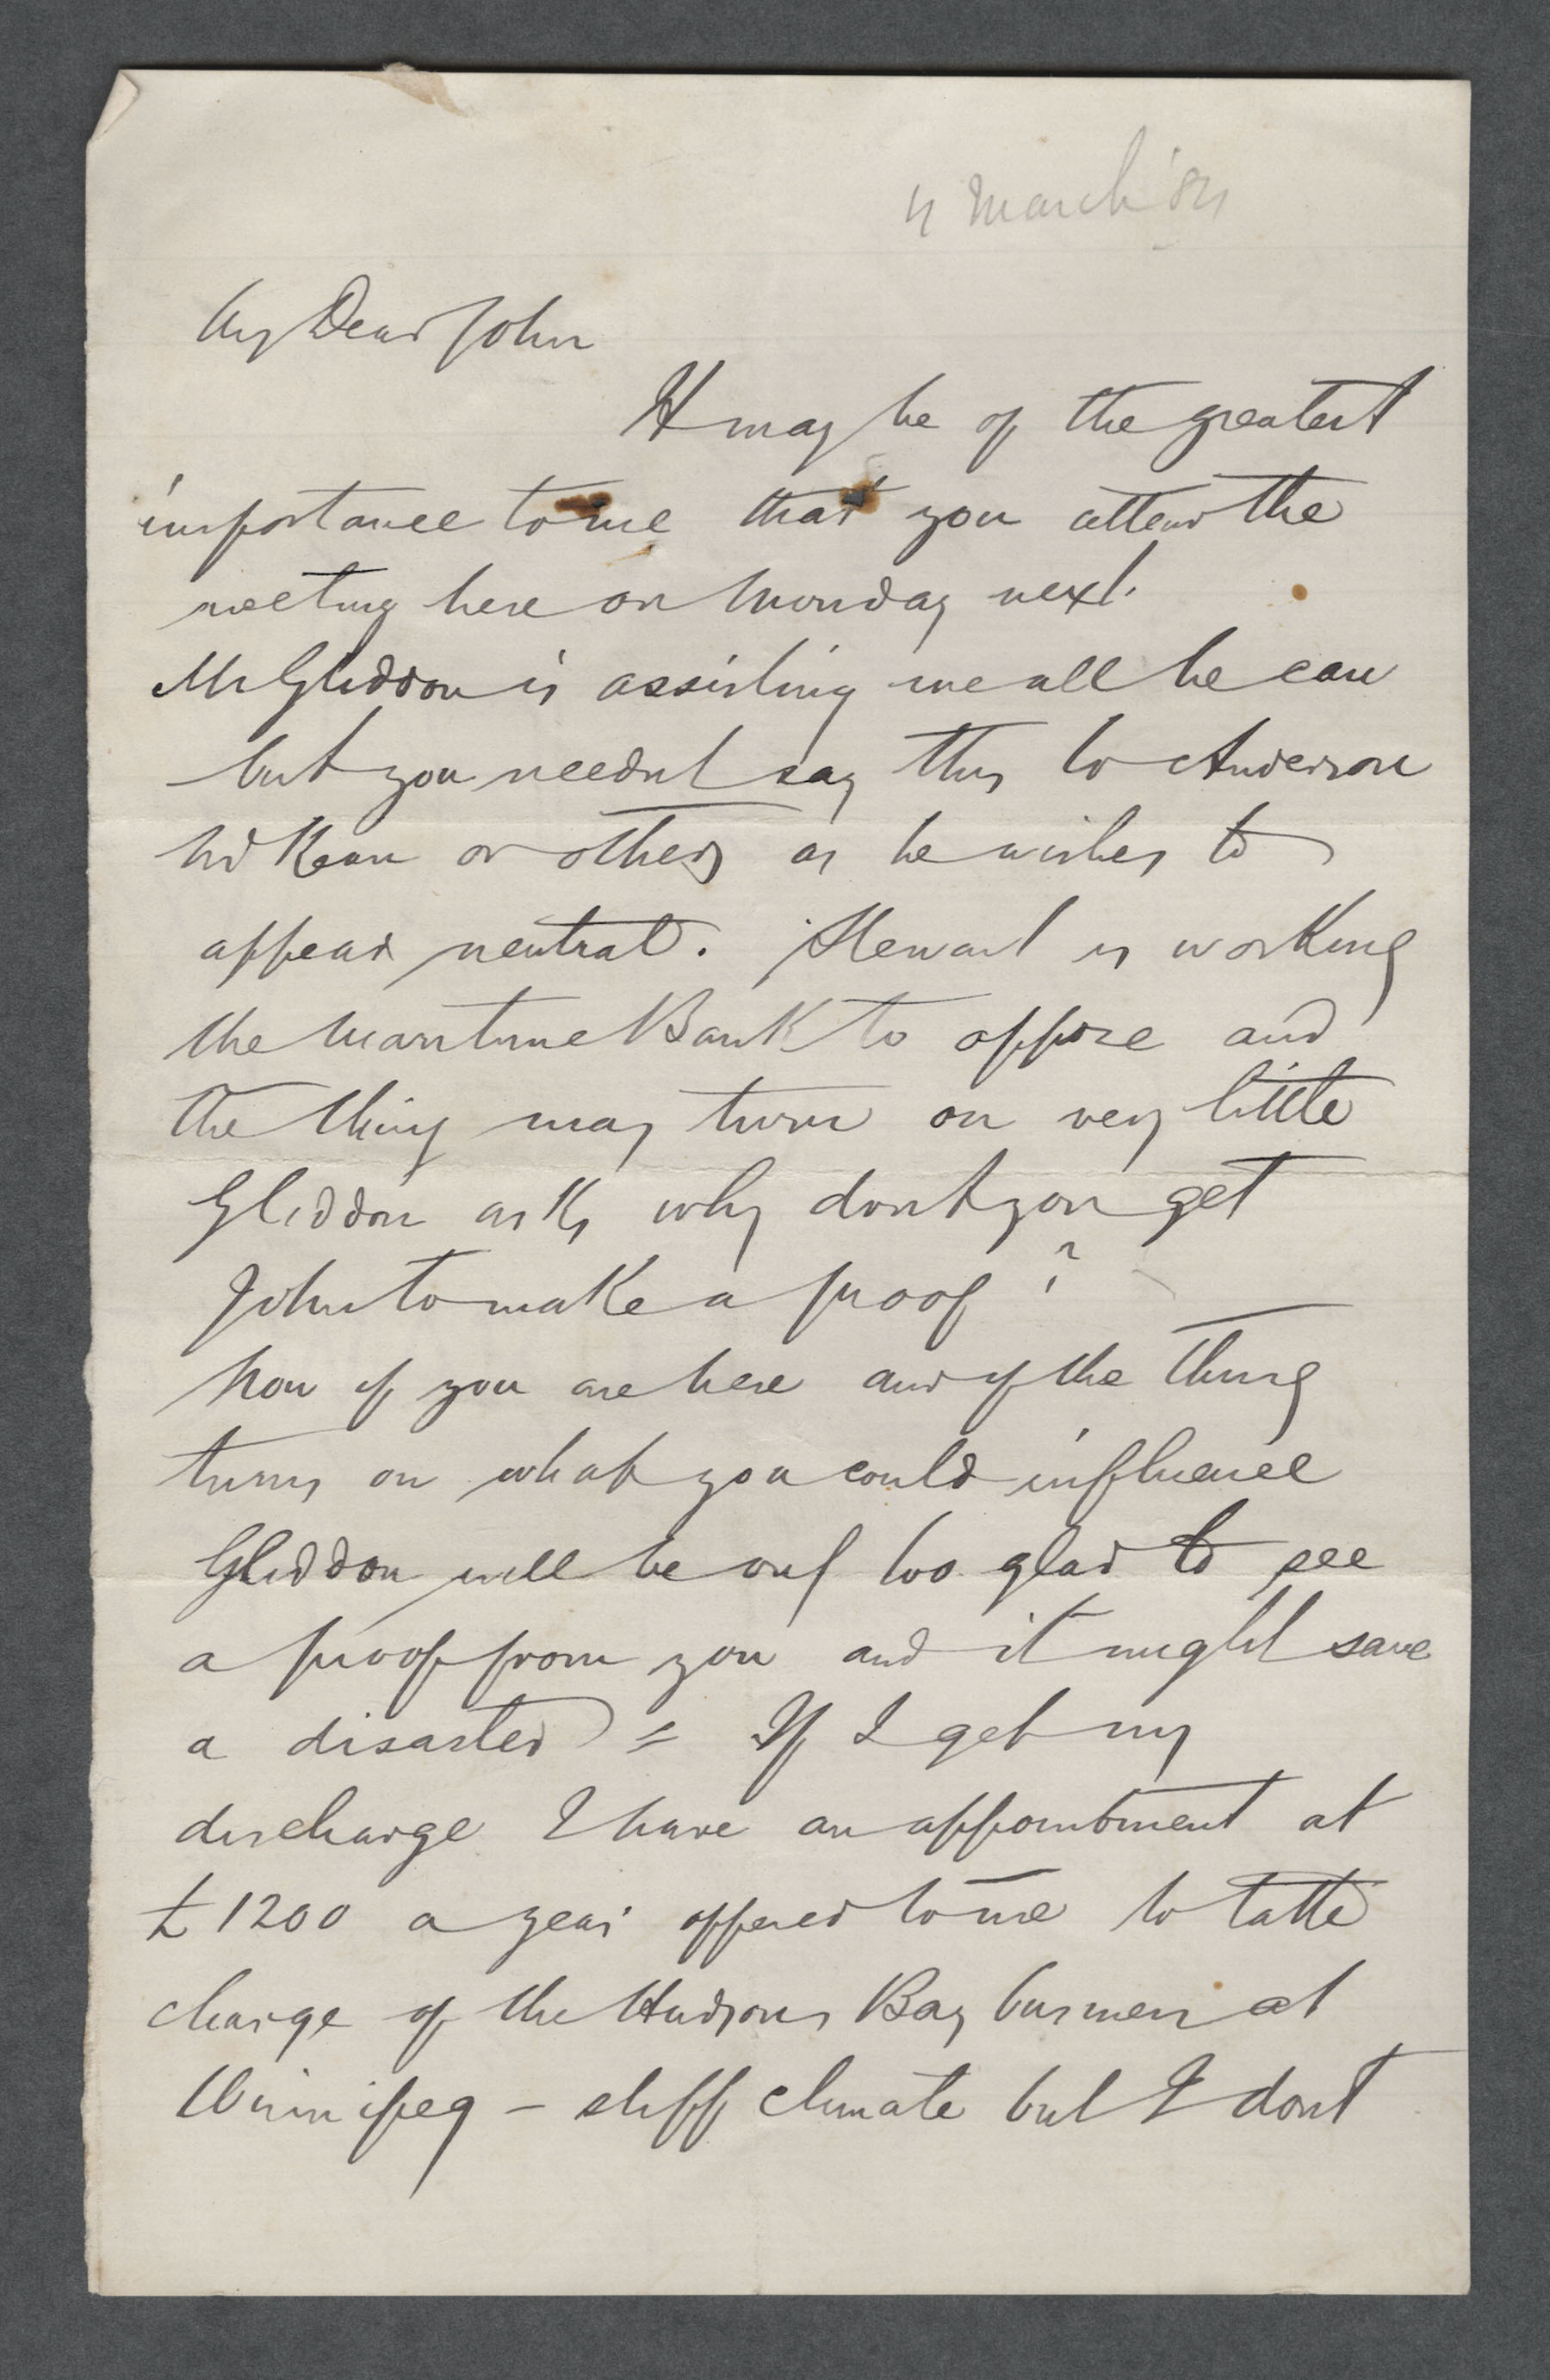 4 March '84
My Dear John
It may be of the greatest
importance to me that you attend the
meeting here on Monday next.
Mr Gliddon is assisting me all he can
but you neednt say this to Anderson
or others as he wishes to
appear neutral. Stewart is working
the Maritime Bank to oppose and
the thing may turn on very little
Gliddon asks why dont you get
John to make a proof?
Now if you are here and if the thing
turns on what you could influence
Gliddon will be only too glad to see
a proof from you and it might save
a disaster = If I get my
discharge I have an appointment at
£1200 a year offered to me to take
charge of the Hudsons Bay business at
Winnipeg - stiff climate but I dont